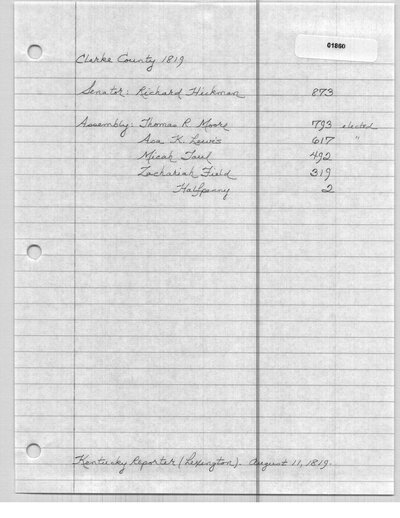 01860
Clarke County 1819
Senator: Richard Hickman 873
Assembly: Thomas R. Moore 793 elected
Asa K. Lewis 617 "
Micah Taul 492
Zachariah Field 319
Halfpenny 2
Kentucky Reporter (Lexington). August 11, 1819.